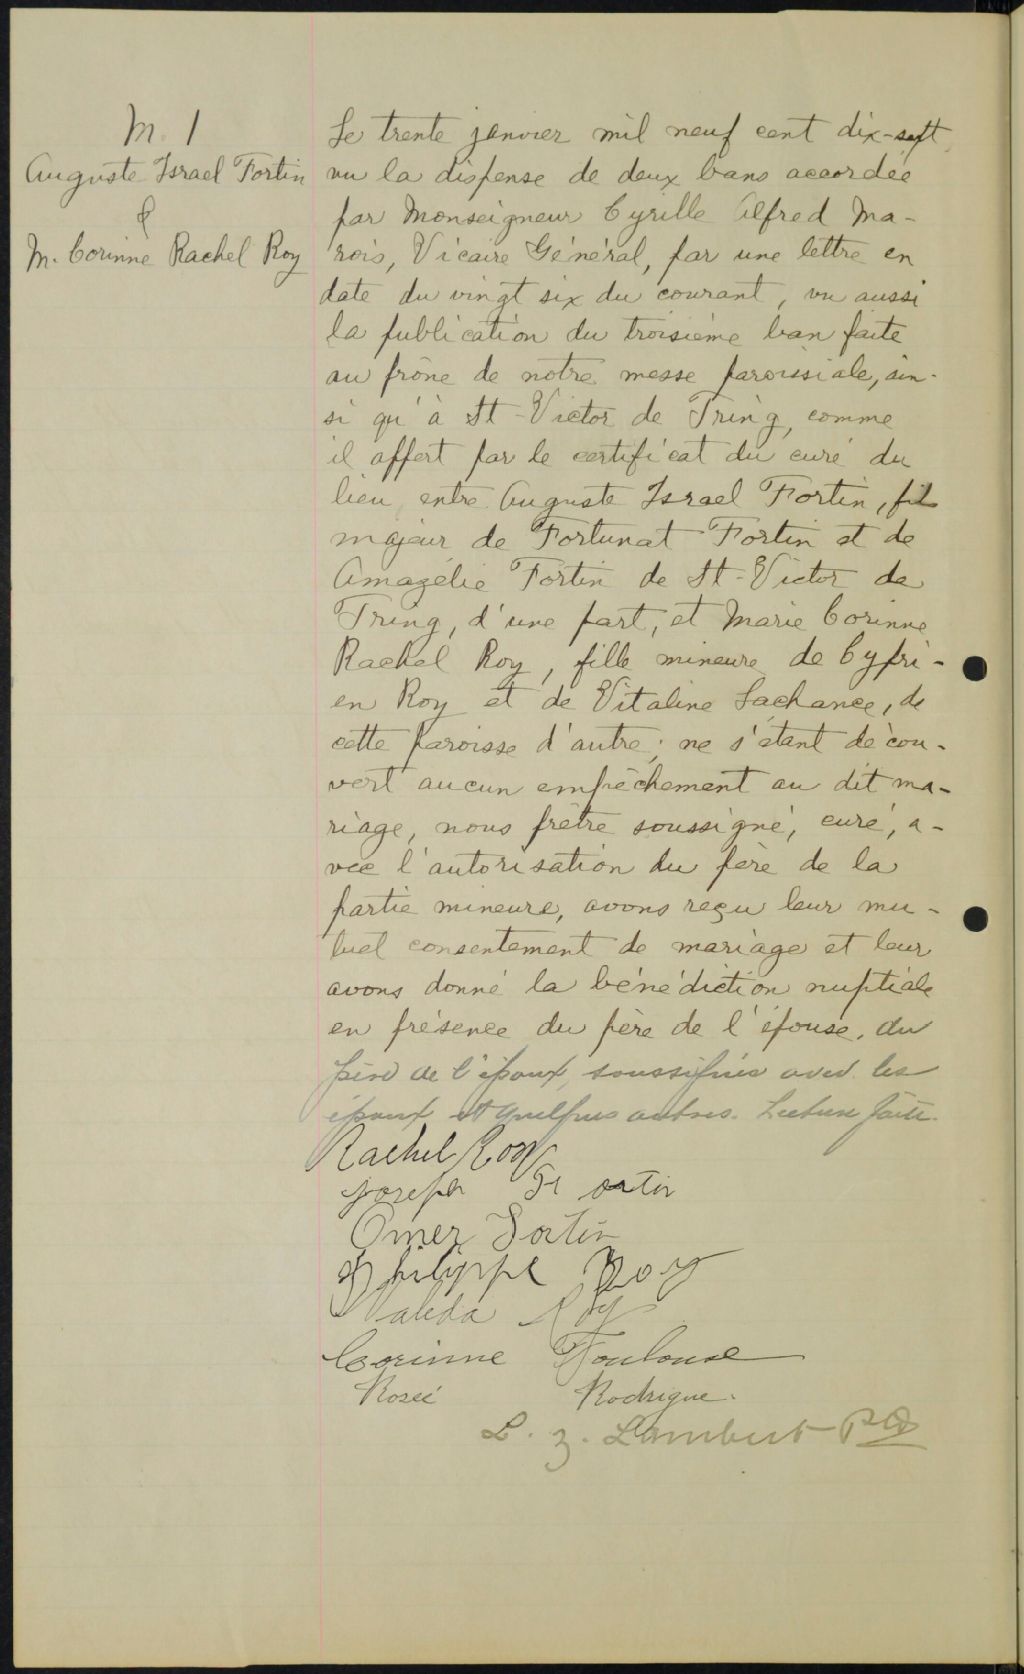 M. 1
Auguste Israel Fortin
&
M. Corinne Rachel Roy
Le trente janvier mil neuf cent dix-sept,
vu la dispense de deux bans accordée
par Monseigneur Cyrille Alfred Ma-
rois, Vicaire Général, par une lettre en
date du vingt six du courant, vu aussi
la publication du troisième ban faite
au prône de notre messe paroissiale, ain-
si qu'à St-Victor de Tring, comme
il appert par le certificat du curé du
lieu, entre Auguste Israel Fortin, fils
majeur de Fortunat Fortin et de
Amazélie Fortin de St-Victor de
Tring, d'une part, et Marie Corinne
Rachel Roy, fille mineure de Cypri-
en Roy et de Vitaline Lachance, de
cette paroisse d'autre; ne s'étant décou-
vert aucun empêchement au dit ma-
riage, nous prêtre soussigné, curé, a-
vec l'autorisation du père de la
partie mineure, avons reçu leur mu-
tuel consentement de mariage et leur
avons donné la bénédiction nuptiale
en présence du père de l'épouse, du
père de l'époux, soussignés avec les
époux et quelques autres. Lecture faite.
Rachel Roy
Joseph Fortin
Omer Fortin
Philippe Roy
Valéda Roy
Corinne Toulouse
Rosée Rodrigue.
L. Z. Lambert Ptre